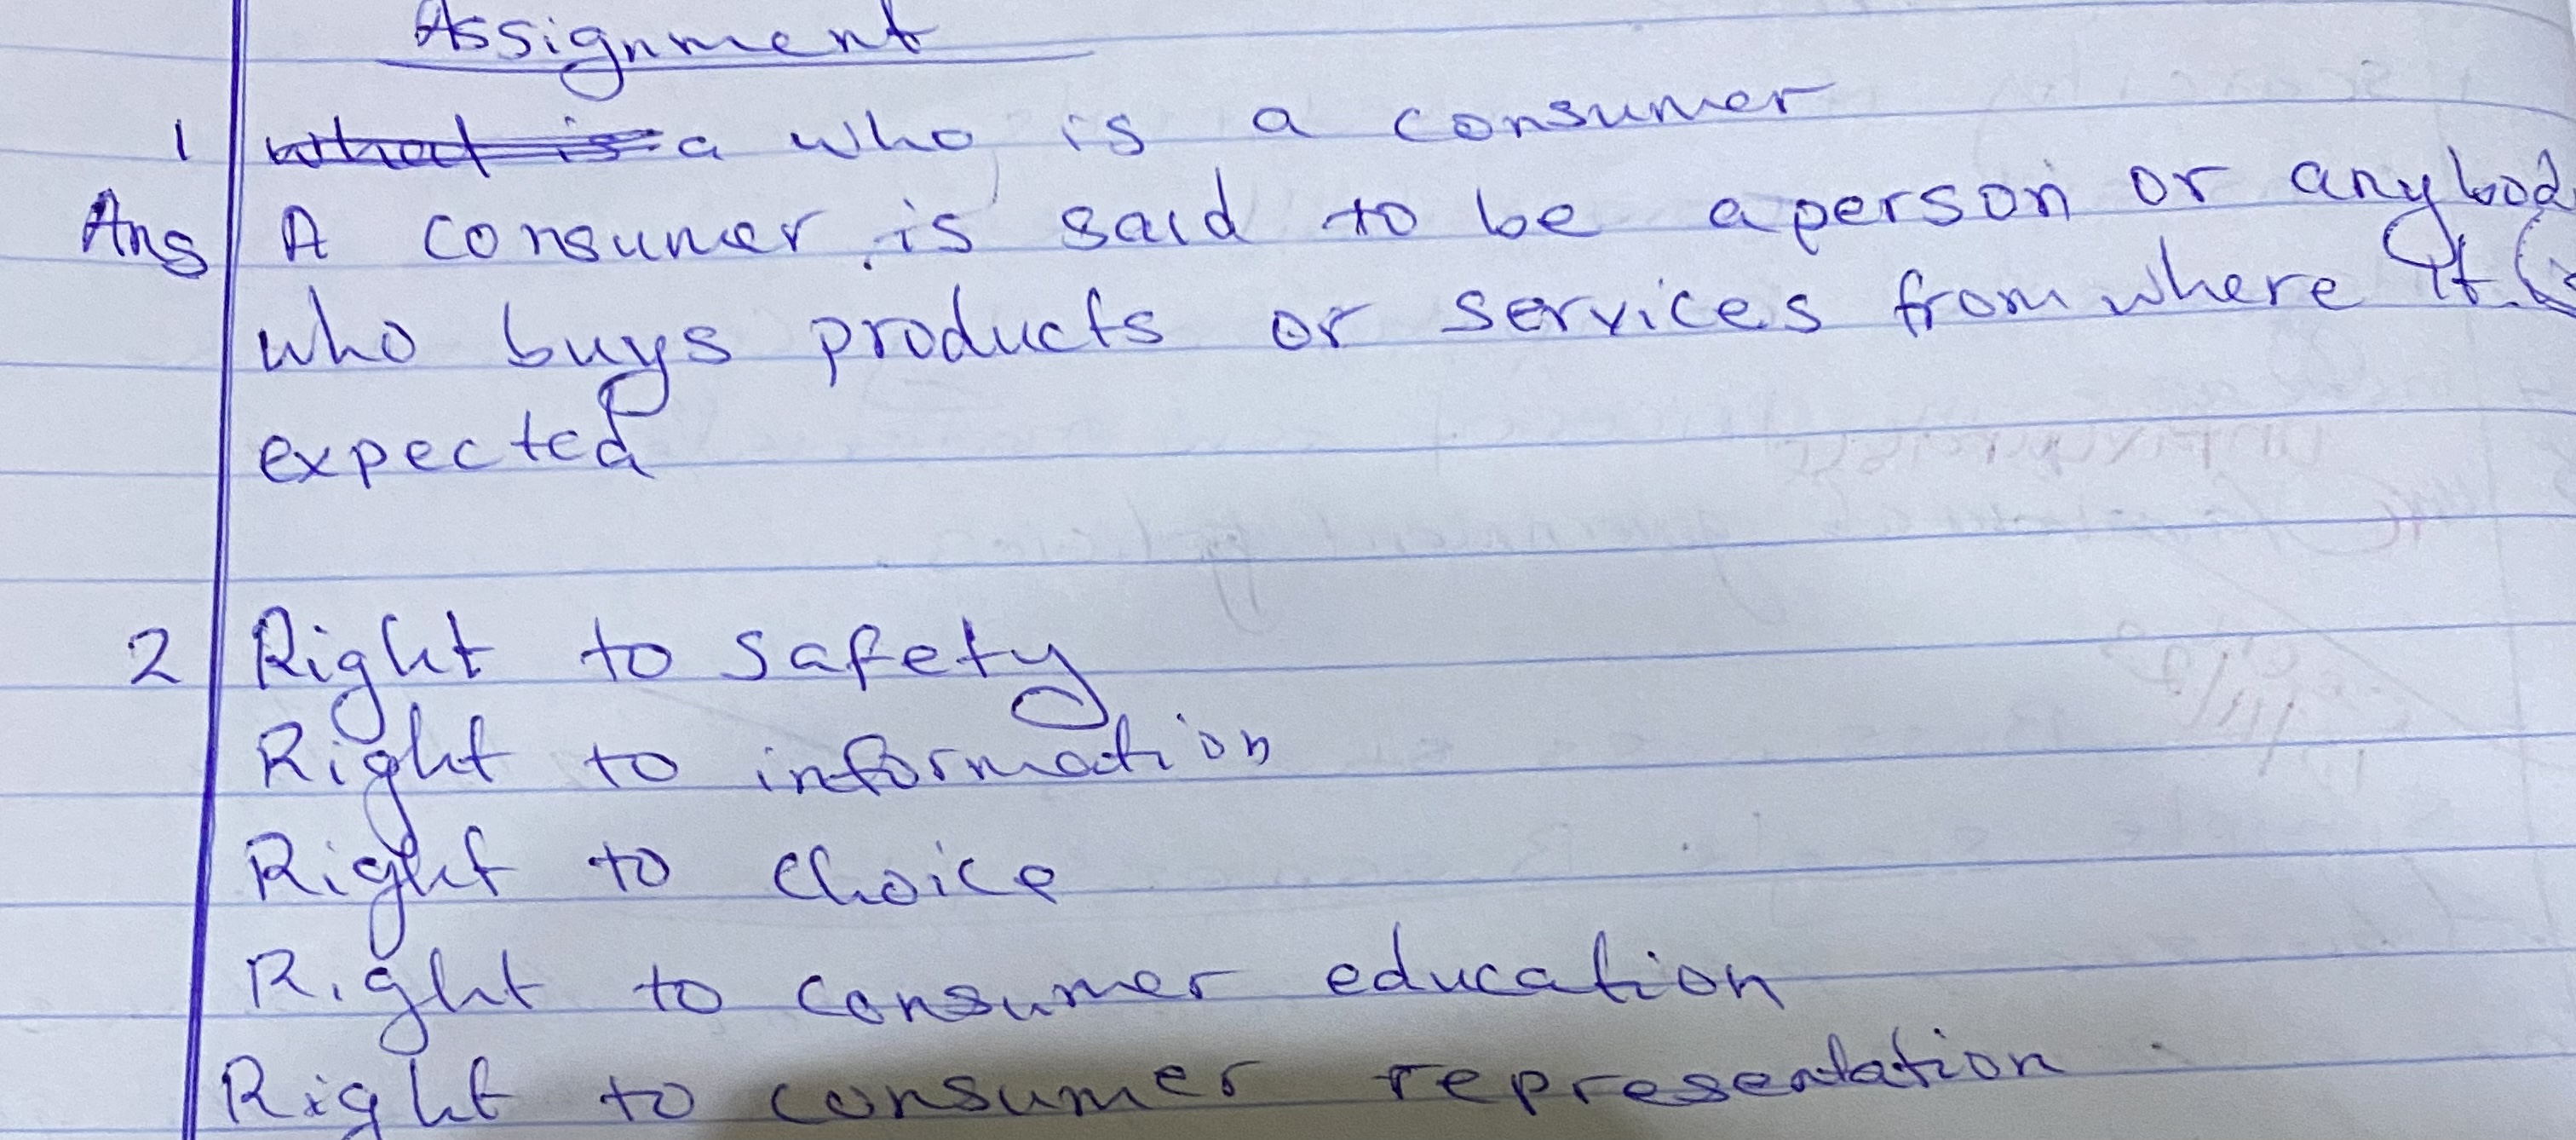 Assignment
1 a who is a consumer
Ans A consumer is said to be a person or anybody
who buys products or services from where it is
expected
2 Right to safety
Right to information
Right to choice
Right to consumer education
Right to consumer representation